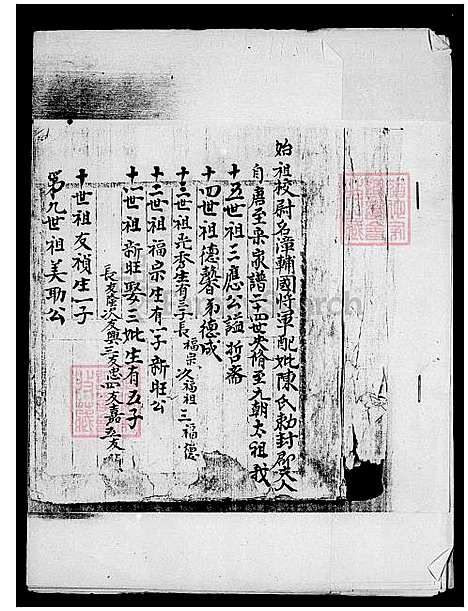 始祖校尉名漳輔國將軍配妣陳氏勅封郡夫人
自唐至宋家譜二十四世失脩至九朝太祖我
十五世祖三應公諡哲齋
十四世祖德馨弟德成
十三世祖光泰生有三子長福宗次福祖三福德
十二世祖福宗生有一子新旺公
十一世祖新旺娶三妣生有五子
長友隆次友興三友忠四友嘉五友
十世祖友禎生一子
第九世祖美助公